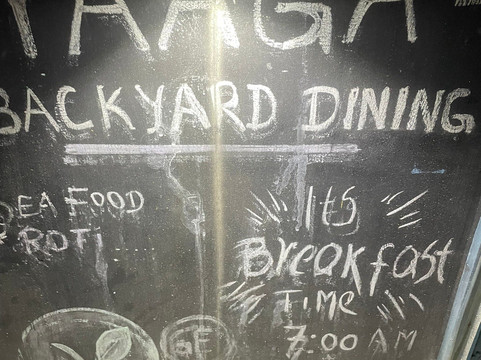 BACKYARD DINING
SEA FOOD
ROTI
It's
Breakfast
TIME
7:00 AM